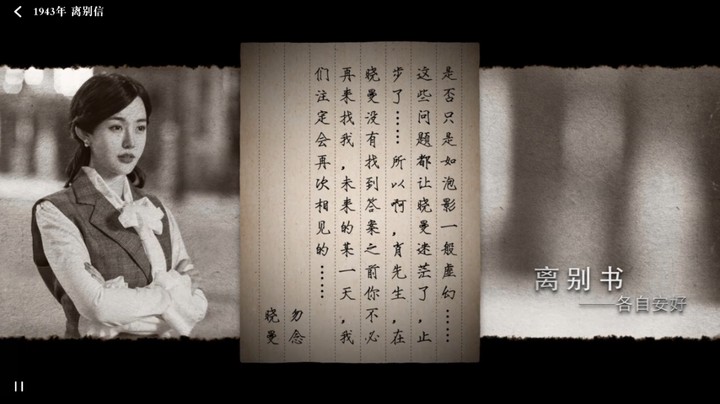 1943年 离别信
是否只是如泡影一般虚幻……
这些问题都让晓曼迷茫了，止
步了……所以啊，肖先生，在
晓曼没有找到答案之前你不必
再来找我，未来的某一天，我
们注定会再次相见的……
勿念
晓曼
离别书
——各自安好